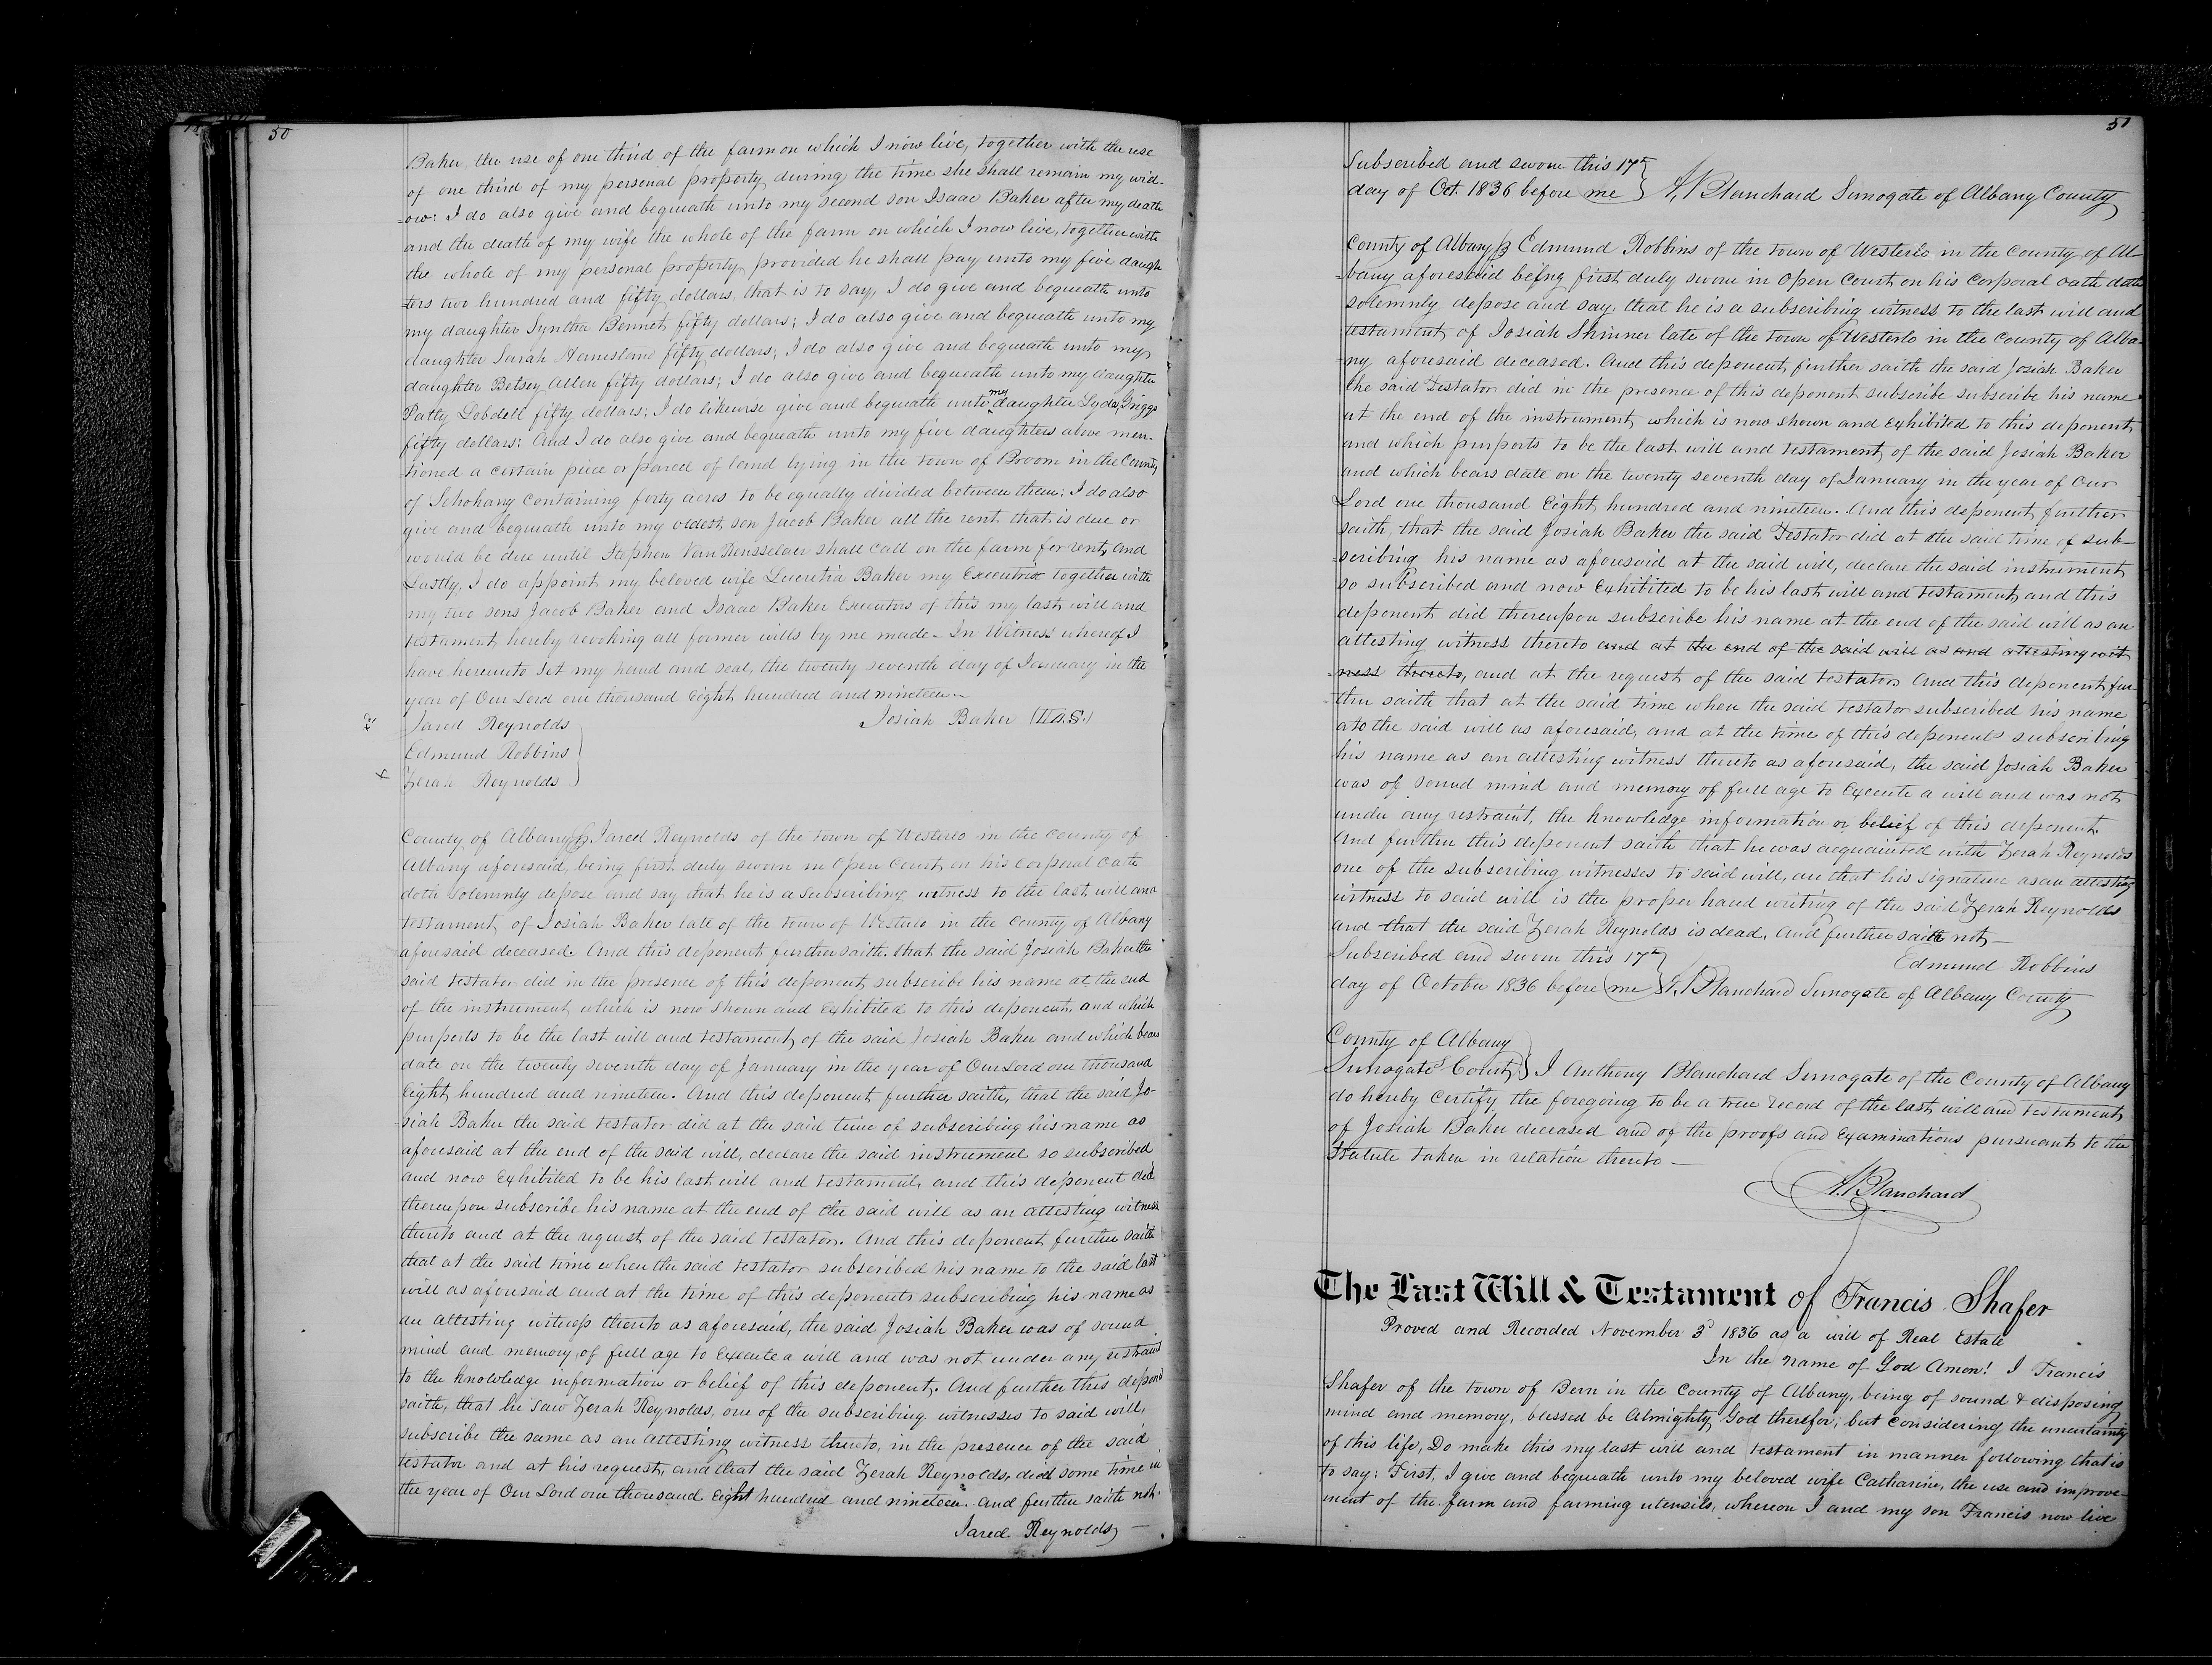 50
Baker, the use of one third of the farm on which I now live, together with the use
of one third of my personal property, during the time she shall remain my wid-
-ow: I do also give and bequeath unto my second son Isaac Baker after my death
and the death of my wife the whole of the farm on which I now live, together with
the whole of my personal property, provided he shall pay unto my five daugh
-ters two hundred and fifty dollars, that is to say, I do give and bequeath unto
my daughter Syntha Bennet fifty dollars; I do also give and bequeath unto my
daughter Sarah fifty dollars; I do also give and bequeath unto my
daughter Betsey Allen fifty dollars; I do also give and bequeath unto my daughter
Patty Lobdell fifty dollars; I do likewise give and bequeath unto my daughter Lyda Griggs
fifty dollars: And I do also give and bequeath unto my five daughters above men-
tioned a certain piece or parcel of land lying in the town of Broom in the County
of Schohary containing forty acres to be equally divided between them; I do also
give and bequeath unto my oldest son Jacob Baker all the rent that is due or
would be due until Stephen Van Rensselaer shall call on the farm for rent, and
Lastly, I do appoint my beloved wife Lucretia Baker my Executrix together with
my two sons Jacob Baker and Isaac Baker Executors of this my last will and
testament, hereby revoking all former wills by me made - In Witness whereof I
have hereunto set my hand and seal, the twenty seventh day of January in the
year of Our Lord one thousand Eight hundred and nineteen
Jared Reynolds Josiah Baker (L.S.)
Edmund Robbins
Zerah Reynolds
County of Albany ss Jared Reynolds of the town of Westerlo in the County of
Albany aforesaid, being first duly sworn in Open Court, on his corporal Oath
doth solemnly depose and say that he is a subscribing witness to the last will and
testament of Josiah Baker late of the town of Westerlo in the County of Albany
aforesaid deceased. And this deponent further saith that the said Josiah Baker the
said testator did in the presence of this deponent subscribe his name at the end
of the instrument which is now shown and exhibited to this deponent, and which
purports to be the last will and testament of the said Josiah Baker and which bears
date on the twenty seventh day of January in the year of Our Lord one thousand
Eight hundred and nineteen. And this deponent further saith, that the said Jo-
-siah Baker the said testator did at the said time of subscribing his name as
aforesaid at the end of the said will, declare the said instrument so subscribed
and now exhibited to be his last will and testament, and this deponent did
thereupon subscribe his name at the end of the said will as an attesting witness
thereto and at the request of the said testator. And this deponent further saith
that at the said time when the said testator subscribed his name to the said last
will as aforesaid and at the time of this deponents subscribing his name as
an attesting witness thereto as aforesaid, the said Josiah Baker was of sound
mind and memory, of full age to Execute a will and was not under any restraint
to the knowledge information or belief of this deponent. And further this deponent
saith, that he saw Zerah Reynolds, one of the subscribing witnesses to said will,
subscribe the same as an attesting witness thereto, in the presence of the said
testator and at his request, and that the said Zerah Reynolds, died some time in
the year of Our Lord one thousand Eight hundred and nineteen. And further saith not.
Jared Reynolds
51
Subscribed and sworn this 17th
day of Oct. 1836 before me A. Blanchard Surrogate of Albany County
County of Albany ss Edmund Robbins of the town of Westerlo in the County of Al-
-bany aforesaid being first duly sworn in Open Court on his corporal oath doth
solemnly depose and say, that he is a subscribing witness to the last will and
testament, of Josiah Skinner late of the town of Westerlo in the County of Alba-
-ny, aforesaid deceased. And this deponent further saith the said Josiah Baker
the said Testator did in the presence of this deponent subscribe subscribe his name
at the end of the instrument, which is now shown and Exhibited to this deponent,
and which purports to be the last will and testament, of the said Josiah Baker
and which bears date on the twenty seventh day of January in the year of Our
Lord one thousand Eight, hundred and nineteen. And this deponent, further
saith, that the said Josiah Baker the said Testator did at the said time of sub-
-scribing his name as aforesaid at the said will, declare the said instrument,
so subscribed and now Exhibited to be his last will and testament, and this
deponent did thereupon subscribe his name at the end of the said will as an
attesting witness thereto and at the end of the said will as and attesting wit
ness thereto, and at the request of the said testator. And this deponent fur-
ther saith that at the said time when the said testator subscribed his name
a to the said will as aforesaid, and at the time of this deponents subscribing
his name as an attesting witness thereto as aforesaid, the said Josiah Baker
was of sound mind and memory of full age to Execute a will and was not
under any restraint, the knowledge information or belief of this deponent.
And further this deponent saith that he was acquainted with Zerah Reynolds
one of the subscribing witnesses to said will, an that his signature as an attesting
witness to said will is the proper hand writing of the said Zerah Reynolds
and that the said Zerah Reynolds is dead. And further saith not -
Subscribed and sworn this 17th Edmund Robbins
day of October 1836 before me A. Blanchard Surrogate of Albany County
County of Albany
Surrogates Court I Anthony Blanchard Surrogate of the County of Albany
do hereby Certify the foregoing to be a true record of the last will and testament,
of Josiah Baker deceased and of the proofs and Examinations pursuant to the
Statute taken in relation thereto -
A. Blanchard
The Last Will & Testament of Francis Shafer
Proved and Recorded November 3d 1836 as a will of Real Estate
In the name of God Amen! I Francis
Shafer of the town of Bern in the County of Albany, being of sound & disposing
mind and memory, blessed be Almighty God therefor, but considering the uncertainty
of this life, Do make this my last will and testament in manner following that is
to say: First, I give and bequeath unto my beloved wife Catharine, the use and improve-
ment of the farm and farming utensils, whereon I and my son Francis now live